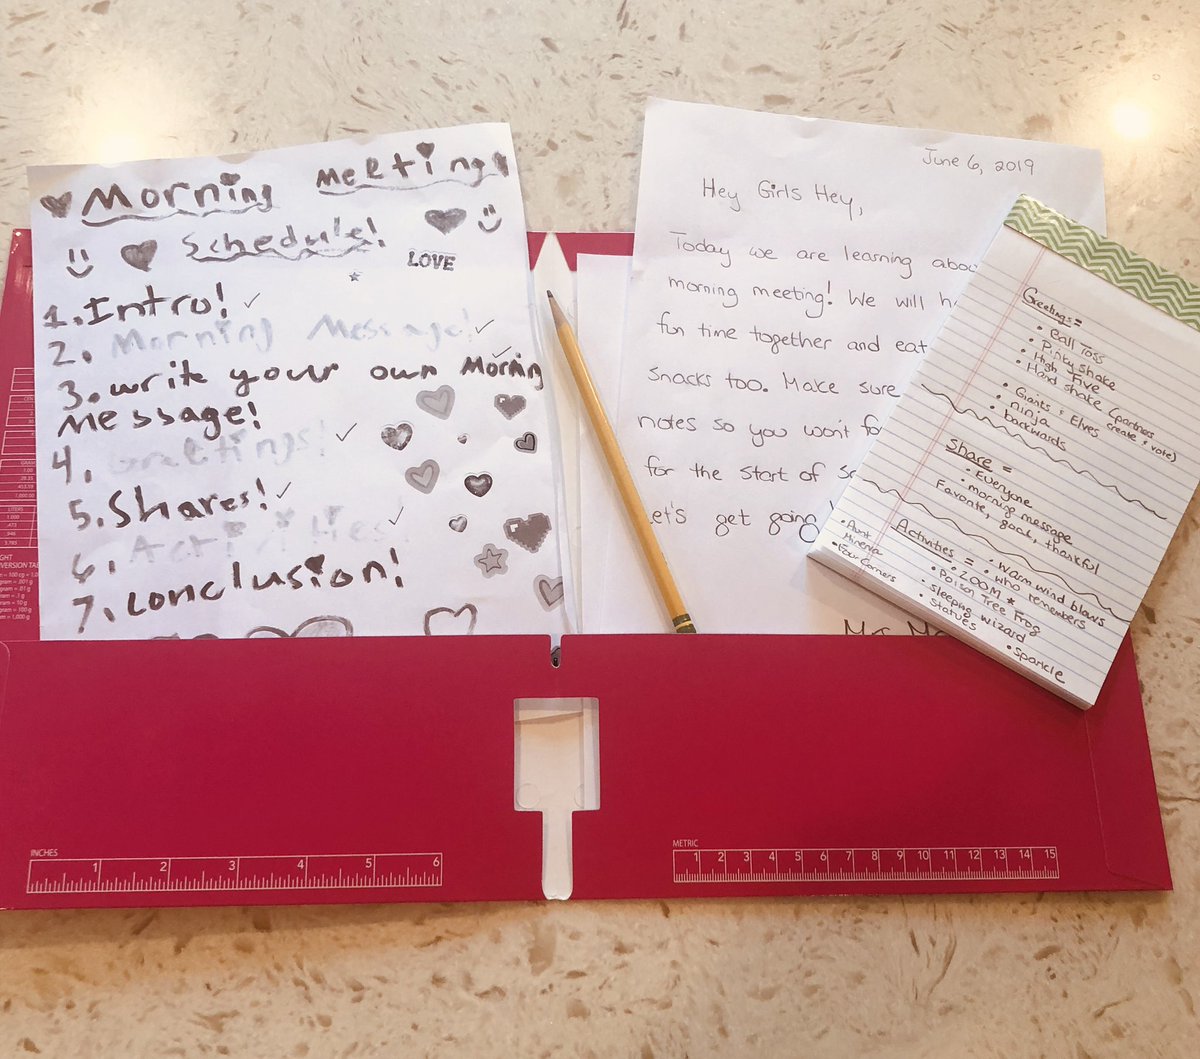 Morning Meeting
Schedule!
LOVE
1. Intro! ✓
2. Morning Message! ✓
3. write your own Morning ✓
Message!
4. Greetings! ✓
5. Shares! ✓
6. Activities! ✓
7. conclusion!
June 6, 2019
Hey Girls Hey,
Today we are learning
morning meeting! We will
fun time together and eat
snacks too. Make sure
notes so you won't
for the start of
Let's get going
Greetings =
• Ball Toss
• Pinky Shake
• High Five
• Hand shake (partners create + vote)
• Giants + Elves
• ninja
• backwards
Share =
• Everyone
• morning message
Favorite, goal, thankful
Activities =
• warm wind blows
• who remembers
• ZOOM ★
• Poison Tree Frog
• Sleeping wizard
• Statues
• Sparkle
• Aunt
Minerva
• Four Corners
INCHES
1 2 3 4 5 6
METRIC
1 2 3 4 5 6 7 8 9 10 11 12 13 14 15
GRAM
1.00
28.35
453.59
1,000.00
LITERS
1.000
.473
.946
3.785